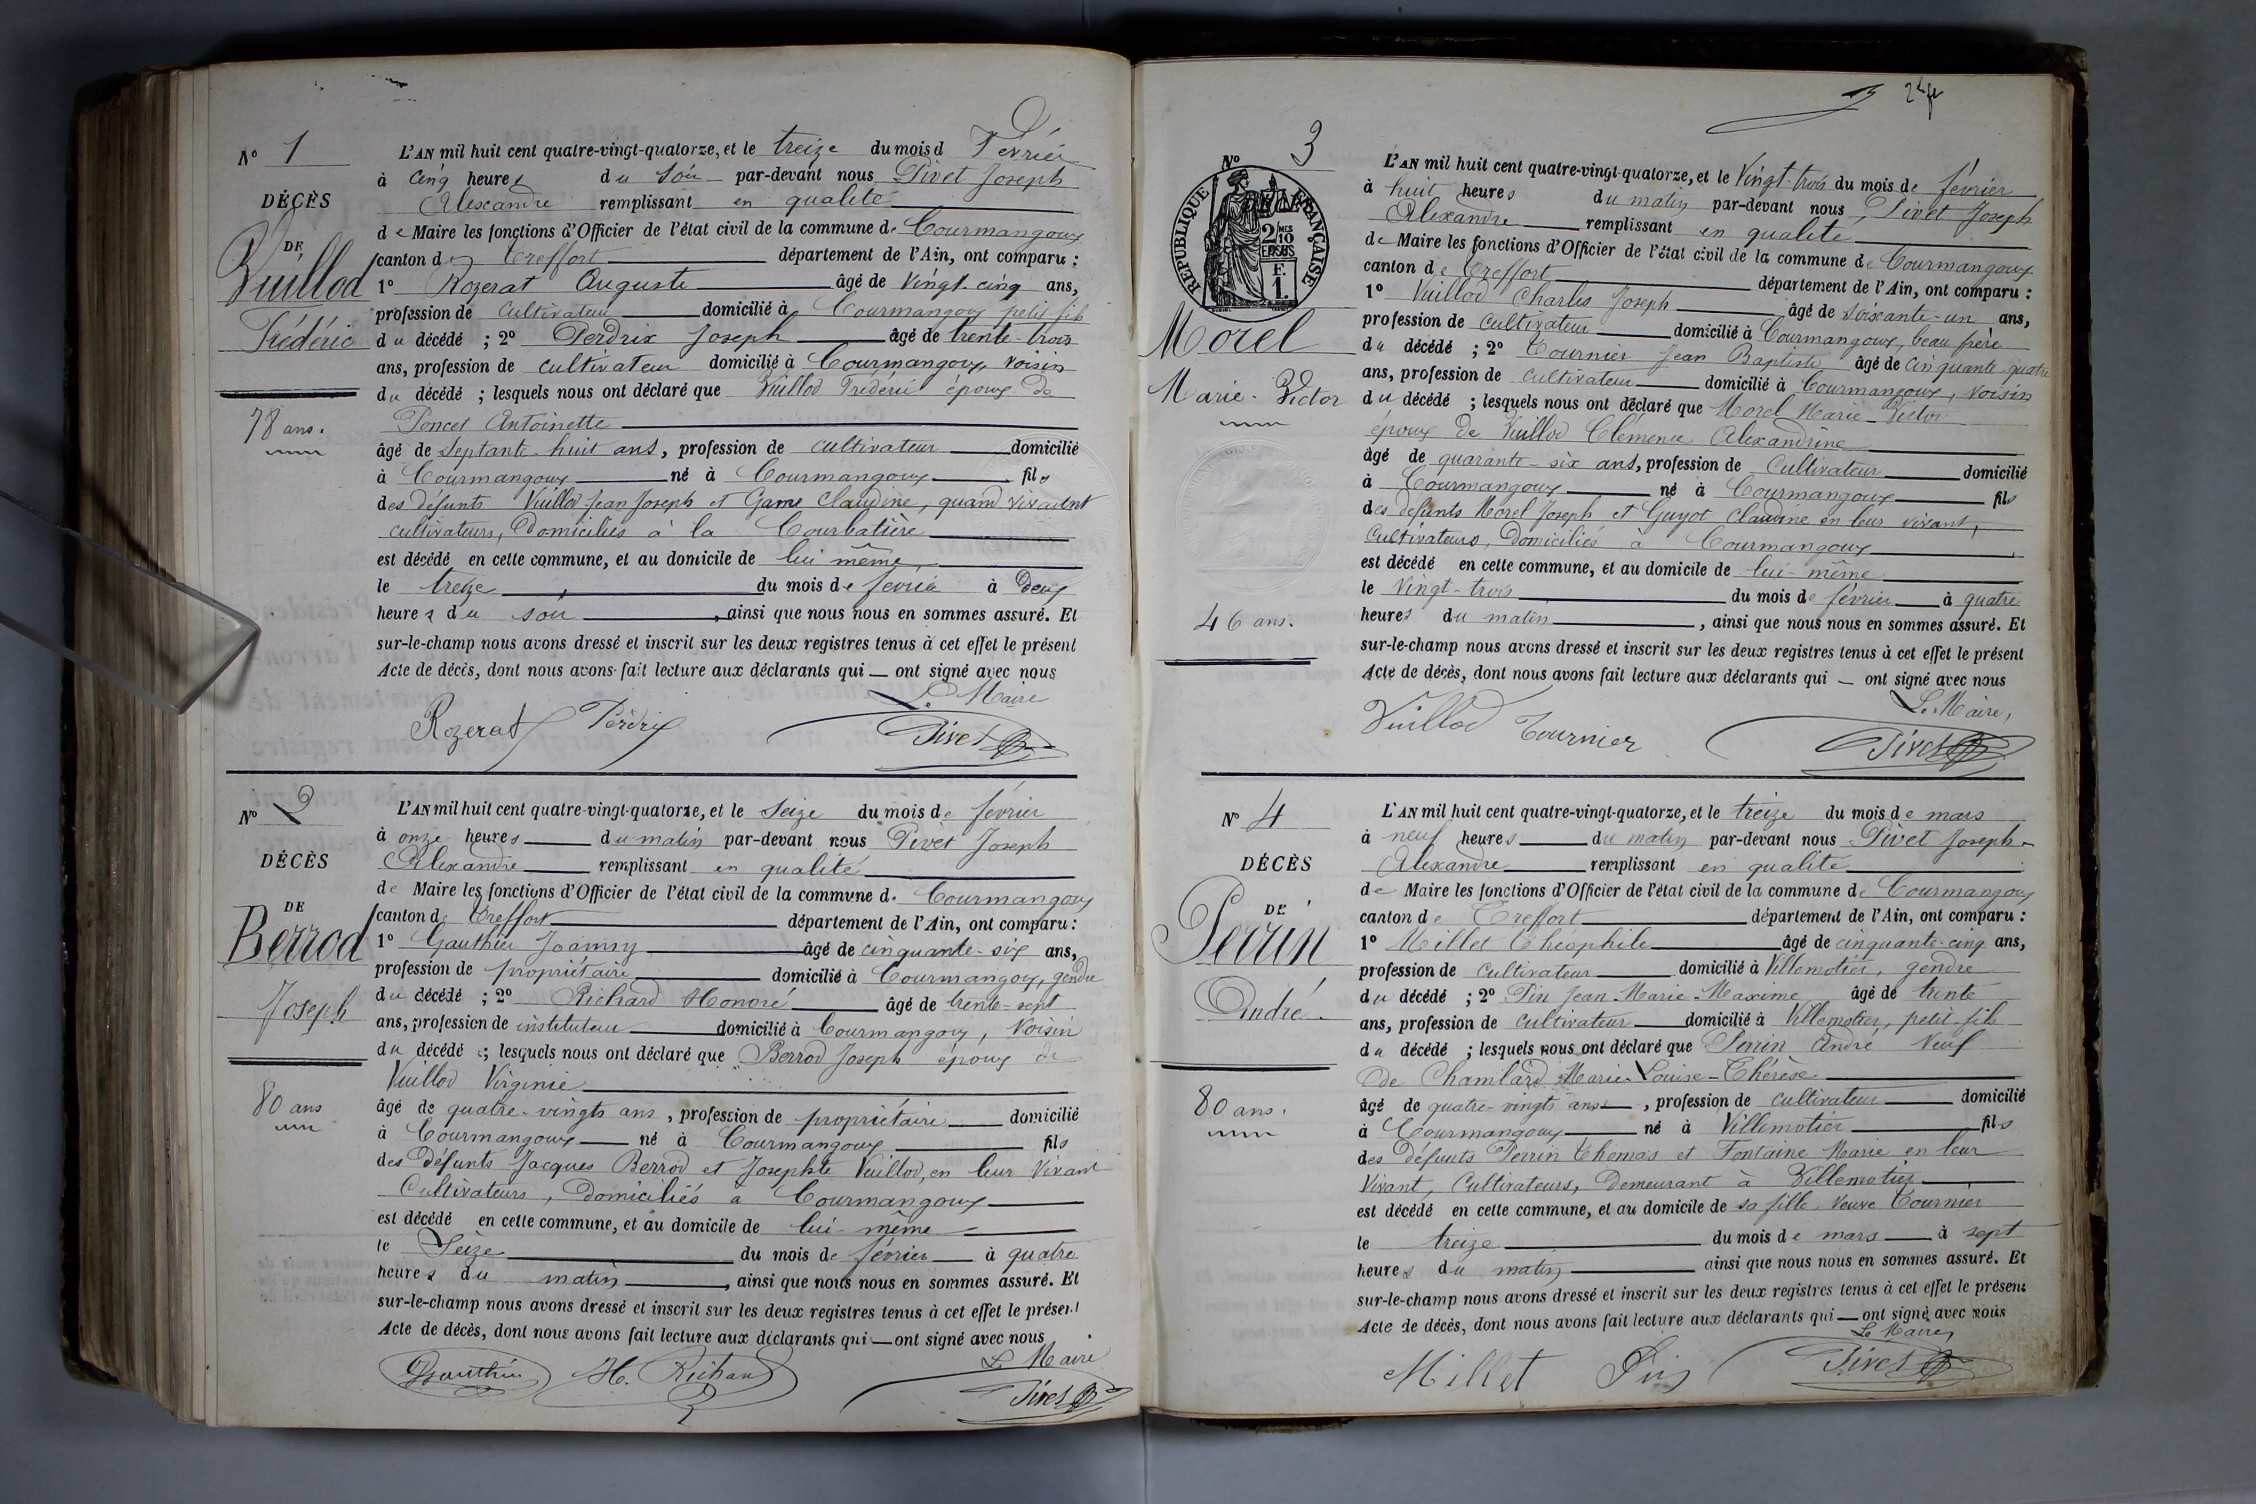 N° 1
DÉCÈS
DE
Vuillod
Frédéric
78 ans.
L'AN mil huit cent quatre-vingt-quatorze, et le treize du mois d Février
à cinq heures du soir par-devant nous Pivet Joseph
Alexandre remplissant en qualité
de Maire les fonctions d'Officier de l'état civil de la commune de Courmangoux
canton de Treffort département de l'Ain, ont comparu :
1° Rozerat Auguste âgé de vingt-cinq ans,
profession de cultivateur domicilié à Courmangoux petit fils
du décédé ; 2° Perdrix Joseph âgé de trente-trois
ans, profession de cultivateur domicilié à Courmangoux, voisin
du décédé ; lesquels nous ont déclaré que Vuillod Frédéric époux de
Poncet Antoinette
âgé de septante-huit ans, profession de cultivateur domicilié
à Courmangoux né à Courmangoux fils
des défunts Vuillod Jean Joseph et Game Claudine, quand vivaient
cultivateurs, domiciliés à la Courbatière
est décédé en cette commune, et au domicile de lui même,
le treize du mois de février à deux
heures du soir, ainsi que nous nous en sommes assuré. Et
sur-le-champ nous avons dressé et inscrit sur les deux registres tenus à cet effet le présent
Acte de décès, dont nous avons fait lecture aux déclarants qui — ont signé avec nous
Le Maire
Rozerat Perdrix Pivet
N° 2
DÉCÈS
DE
Berrod
Joseph
80 ans
L'AN mil huit cent quatre-vingt-quatorze, et le seize du mois de février
à onze heures du matin par-devant nous Pivet Joseph
Alexandre remplissant en qualité
de Maire les fonctions d'Officier de l'état civil de la commune de Courmangoux
canton de Treffort département de l'Ain, ont comparu :
1° Gauthier Joamny âgé de cinquante-six ans,
profession de propriétaire domicilié à Courmangoux, gendre
du décédé ; 2° Richard Honoré âgé de trente-sept
ans, profession de instituteur domicilié à Courmangoux, voisin
du décédé ; lesquels nous ont déclaré que Berrod Joseph époux de
Vuillod Virginie
âgé de quatre-vingts ans, profession de propriétaire domicilié
à Courmangoux né à Courmangoux fils
des défunts Jacques Berrod et Josephte Vuillod, en leur vivant
cultivateurs, domiciliés à Courmangoux
est décédé en cette commune, et au domicile de lui-même
le seize du mois de février à quatre
heures du matin, ainsi que nous nous en sommes assuré. Et
sur-le-champ nous avons dressé et inscrit sur les deux registres tenus à cet effet le présent
Acte de décès, dont nous avons fait lecture aux déclarants qui — ont signé avec nous
Le Maire
Gauthier H. Richard Pivet
N° 3
RÉPUBLIQUE FRANÇAISE
2/10 MES
EN SUS
F.
1.
Morel
Marie-Victor
46 ans.
L'AN mil huit cent quatre-vingt-quatorze, et le vingt-trois du mois de février
à huit heures du matin par-devant nous, Pivet Joseph
Alexandre remplissant en qualité
de Maire les fonctions d'Officier de l'état civil de la commune de Courmangoux
canton de Treffort département de l'Ain, ont comparu :
1° Vuillod Charles Joseph âgé de soixante-un ans,
profession de cultivateur domicilié à Courmangoux, beau frère
du décédé ; 2° Tournier Jean Baptiste âgé de cinquante-quatre
ans, profession de cultivateur domicilié à Courmangoux, voisin
du décédé ; lesquels nous ont déclaré que Morel Marie-Victor
époux de Vuillod Clémence Alexandrine
âgé de quarante-six ans, profession de cultivateur domicilié
à Courmangoux né à Courmangoux fils
des défunts Morel Joseph et Guyot Claudine en leur vivant,
cultivateurs, domiciliés à Courmangoux
est décédé en cette commune, et au domicile de lui-même
le vingt-trois du mois de février à quatre
heures du matin, ainsi que nous nous en sommes assuré. Et
sur-le-champ nous avons dressé et inscrit sur les deux registres tenus à cet effet le présent
Acte de décès, dont nous avons fait lecture aux déclarants qui — ont signé avec nous
Le Maire,
Vuillod Tournier Pivet
N° 4
DÉCÈS
DE
Perrin
André.
80 ans.
L'AN mil huit cent quatre-vingt-quatorze, et le treize du mois de mars
à neuf heures du matin par-devant nous Pivet Joseph-
Alexandre remplissant en qualité
de Maire les fonctions d'Officier de l'état civil de la commune de Courmangoux
canton de Treffort département de l'Ain, ont comparu :
1° Millet Théophile âgé de cinquante-cinq ans,
profession de cultivateur domicilié à Villemotier, gendre
du décédé ; 2° Pin Jean-Marie-Maxime âgé de trente
ans, profession de cultivateur domicilié à Villemotier, petit-fils
du décédé ; lesquels nous ont déclaré que Perrin André veuf
de Chamlard Marie-Louise-Thérèse
âgé de quatre-vingts ans, profession de cultivateur domicilié
à Courmangoux né à Villemotier fils
des défunts Perrin Thomas et Fontaine Marie en leur
vivant, cultivateurs, demeurant à Villemotier
est décédé en cette commune, et au domicile de sa fille veuve Tournier
le treize du mois de mars à sept
heures du matin ainsi que nous nous en sommes assuré. Et
sur-le-champ nous avons dressé et inscrit sur les deux registres tenus à cet effet le présent
Acte de décès, dont nous avons fait lecture aux déclarants qui — ont signé avec nous
Le Maire,
Millet Pin Pivet